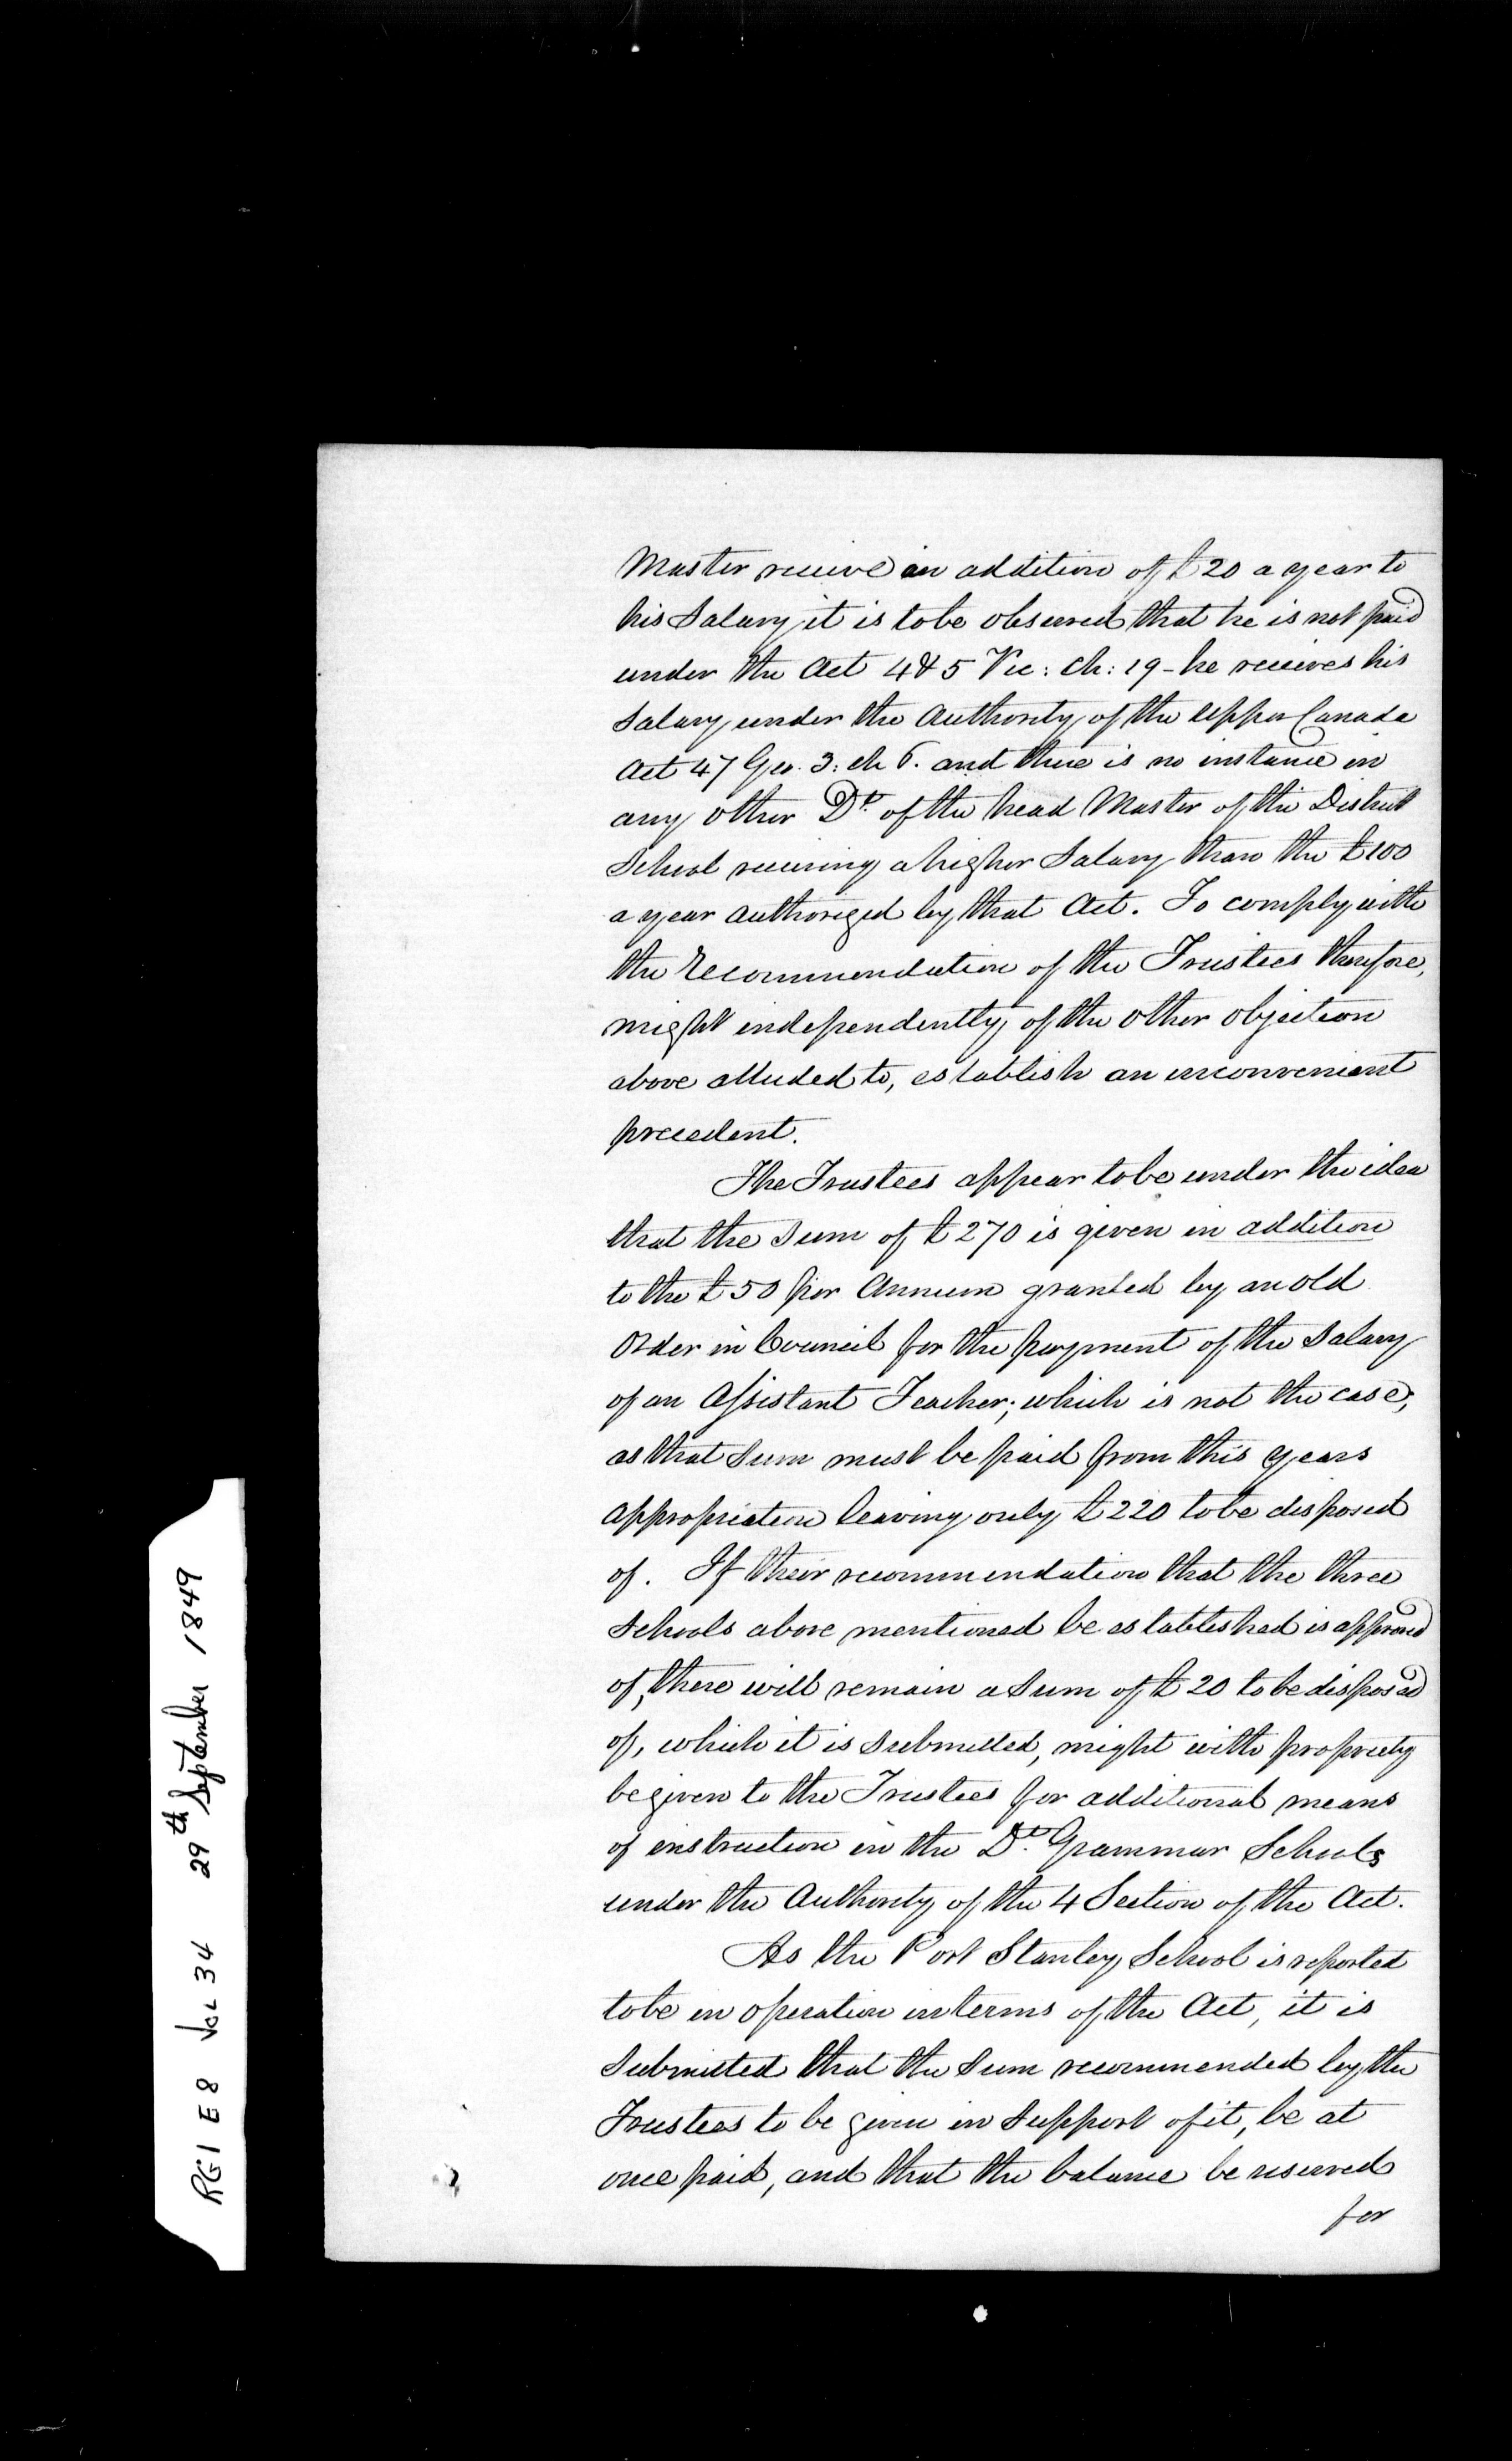 Master receive an addition of £20 a year to
his Salary it is to be observed that he is not paid
under the Act 4 & 5 Vic: Ch: 19 - he receives his
Salary under the Authority of the Upper Canada
Act 47 Geo. 3: ch 6. and there is no instance in
any other Dt. of the head Master of the District
School receiving a higher Salary than the £100
a year authorized by that Act. To comply with
the Recommendation of the Trustees therefore,
might independently of the other objection
above alluded to, establish an inconvenient
precedent.
The Trustees appear to be under the idea
that the Sum of £270 is given in addition
to the £50 per Annum granted by an old
Order in Council for the payment of the Salary
of an Assistant Teacher; which is not the case;
as that Sum must be paid from this years
appropriation leaving only £220 to be disposed
of. If their recommendation that the three
Schools above mentioned be established is approved
of, there will remain a Sum of £20 to be disposed
of, which it is submitted, might with propriety
be given to the Trustees for additional means
of instruction in the Dt. Grammar Schools
under the Authority of the 4 Section of the Act.
As the Port Stanley School is reported
to be in operation in terms of the Act, it is
Submitted that the Sum recommended by the
Trustees to be given in Support of it, be at
once paid, and that the balance be reserved
for
RG1 E8 Vol 34 29th September 1849